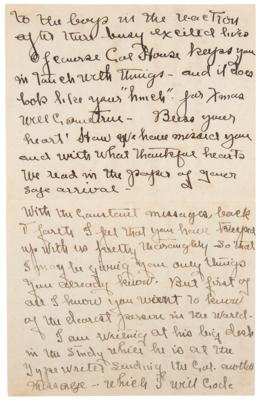 to the boys in the reaction
after their busy excited lives
Of course Col House keeps you
in touch with things - and it does
look like your "hunch" for Xmas
will come true - Bless your
heart! How we have missed you
and with what thankful hearts
we read in the paper of your
safe arrival -
With the constant messages back
& forth I feel that you have keeped
up with us pretty thoroughly so that
I may be giving you only things
you already know. But first of
all I know you want to know
of the dearest person in the world -
I am writing at his big desk
in the study while he is at the
typewriter sending the Col. another
message - which I will code